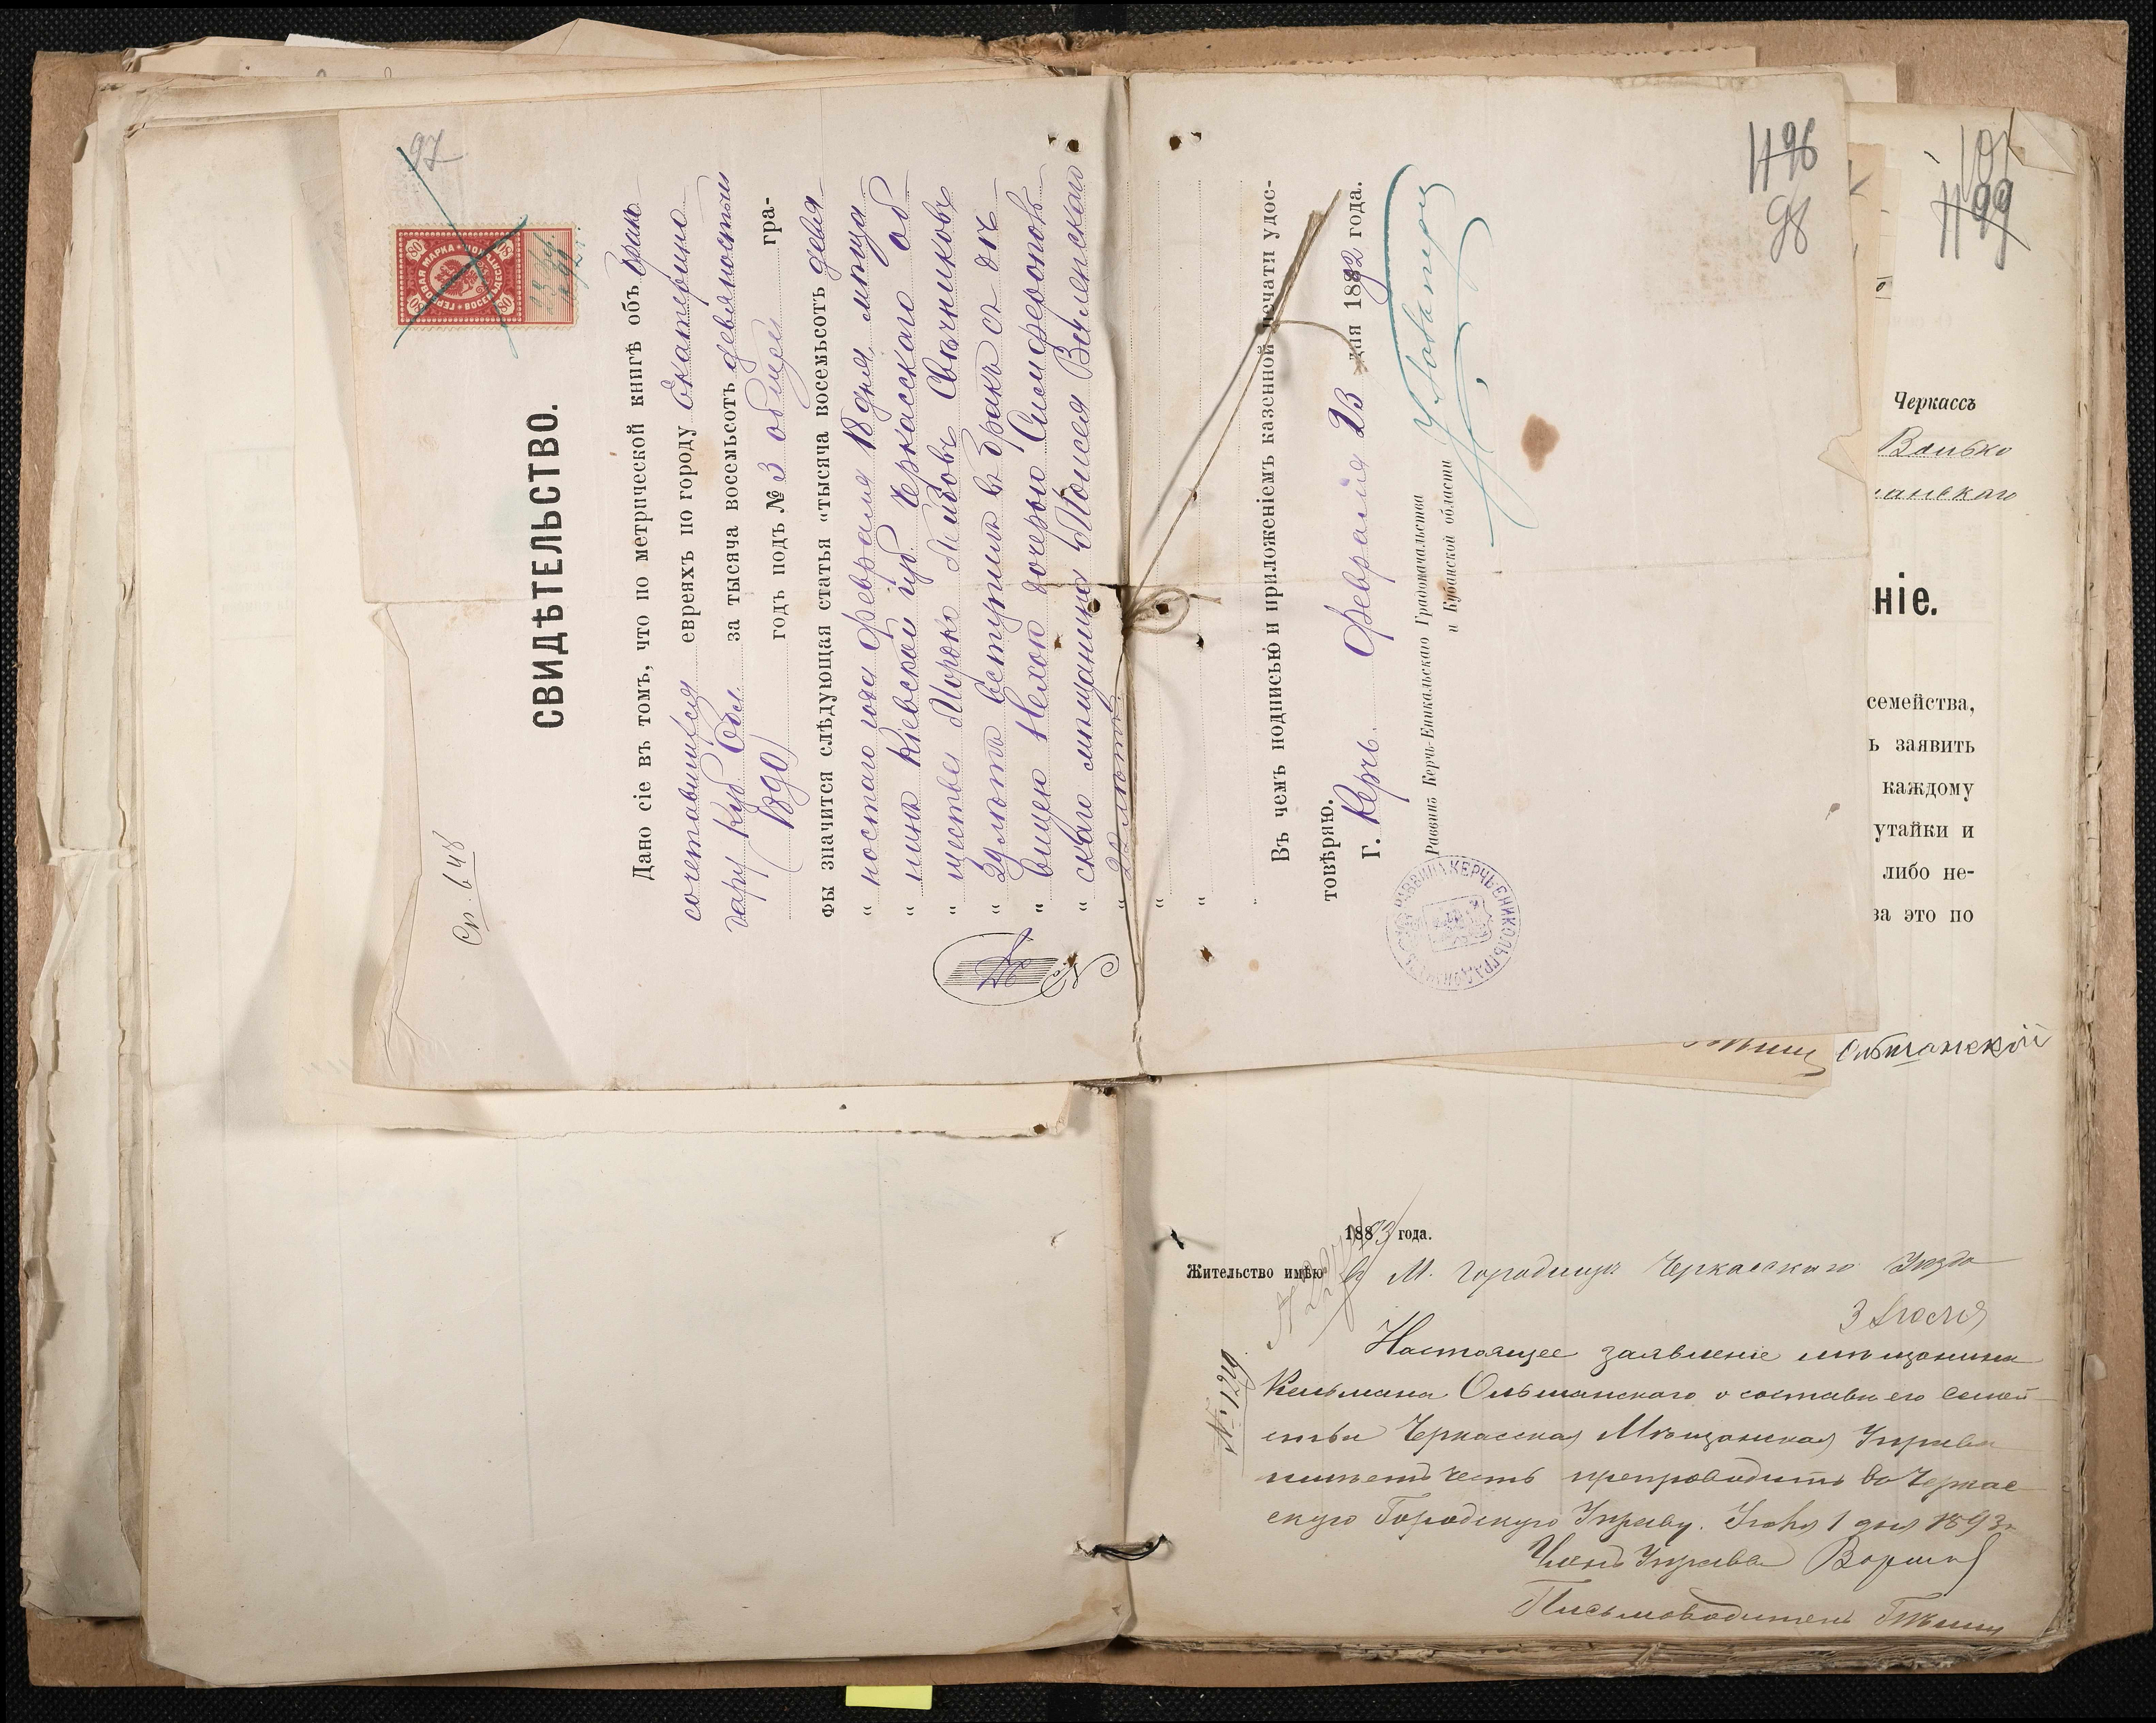 97
80 ГЕРБОВАЯ МАРКА 80
80 ВОСЕМЬДЕСЯТЪ КОП. 80
Ст. 648
СВИДѢТЕЛЬСТВО.
Дано сіе въ томъ, что по метрической книгѣ объ бракѣ
сочетавшихся евреяхъ по городу Екатерино
дару Куб. Обл. за тысяча восемьсотъ девяностый
(1890) годъ подъ № 3 общей гра-
фы значится слѣдующая статья "тысяча восемьсотъ девя
" ностаго года февраля 18 дня, мѣща
" нинъ Кіевской губ. Черкасскаго об
" щества Лейзовъ Свѣчниковъ
" 29 лѣтъ вступилъ въ бракъ съ дѣ
" вицею Нехою дочерью Симферополь
" скаго мѣщанина Моисея Виленскаго
" 22 лѣтъ.
"
"
Въ чемъ подписью и приложеніемъ казенной печати удос-
товѣряю.
Г. Керчь. Февраля 23 дня 1892 года.
Раввинъ Керчь-Еникальскаго Градоначальства
и Кубанской области
1196
98
101
1199
Черкассъ
ніе.
семейства,
ь заявить
каждому
утайки и
либо не-
за это по
Ольшанскій
1883 года.
Жительство имѣю в М. Городищѣ Черкасского Уѣзда
3 Іюля
№ 129
Настоящее заявленіе мѣщанина
Кельмана Ольшанскаго о составѣ его семей
ства Черкасская Мѣщанская Управа
имѣетъ честь препроводить во Черкас
скую Городскую Управу. Іюля 1 дня 1893 г.
Членъ Управы
Письмоводитель